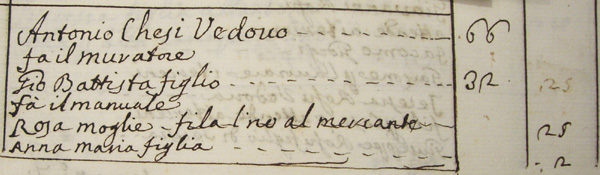 Antonio Chesi Vedovo 66
fa il muratore
Gio Battista figlio 32
fa il manuale
Rosa moglie fila lino al mercante 25
Anna maria figlia 2